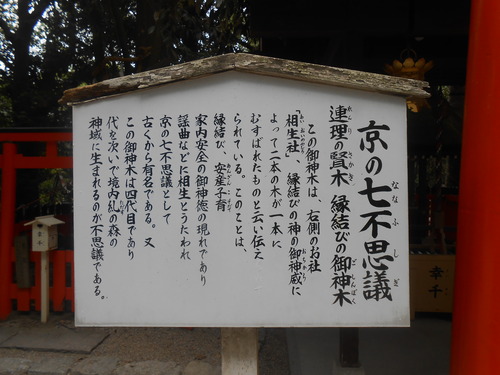 京の七不思議
連理の賢木 縁結びの御神木
この御神木は、右側のお社
「相生社」 縁結びの神の御神威に
よって二本の木が一本に
むすばれたものと云い伝え
られている。このことは、
縁結び 安産子育
家内安全の御神徳の現れであり
謡曲などに相生とうたわれ
京の七不思議として
古くから有名である。又
この御神木は四代目であり
代を次いで境内糺の森の
神域に生まれるのが不思議である。
幸千